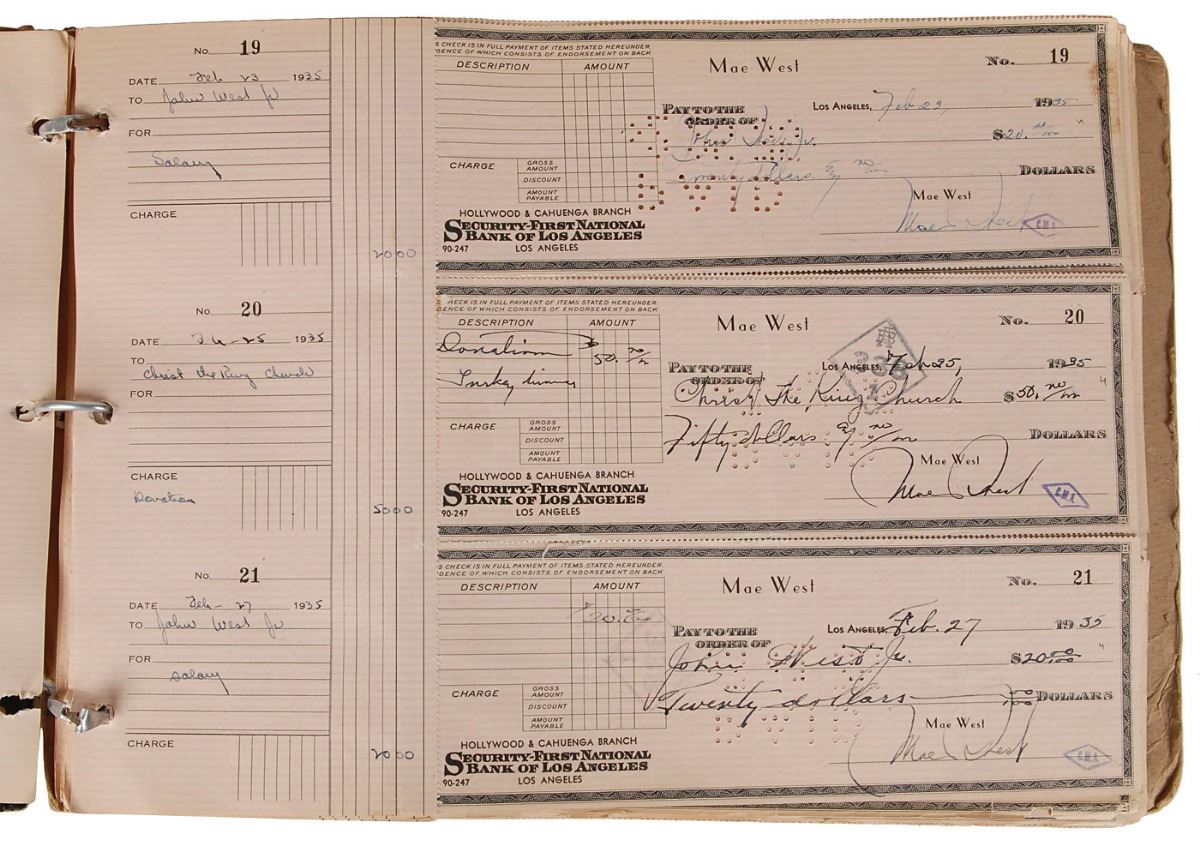 No. 19
DATE Feb 23 1935
TO John West Jr
FOR
Salary
CHARGE
2000
No. 20
DATE Feb-25 1935
TO
Christ the King Church
FOR
CHARGE
Donation
5000
No. 21
DATE Feb-27 1935
TO John West Jr
FOR
salary
CHARGE
2000
S CHECK IS IN FULL PAYMENT OF ITEMS STATED HEREUNDER.
DENCE OF WHICH CONSISTS OF ENDORSEMENT ON BACK
DESCRIPTION AMOUNT
Mae West
No. 19
LOS ANGELES, Feb 23, 1935
PAY TO THE
ORDER OF John West Jr. $20. no/100
Twenty dollars & no/100 DOLLARS
CHARGE
GROSS AMOUNT
DISCOUNT
AMOUNT PAYABLE
Mae West
Mae West
C.M.A.
HOLLYWOOD & CAHUENGA BRANCH
SECURITY-FIRST NATIONAL
BANK OF LOS ANGELES
90-247 LOS ANGELES
HECK IS IN FULL PAYMENT OF ITEMS STATED HEREUNDER.
DENCE OF WHICH CONSISTS OF ENDORSEMENT ON BACK
DESCRIPTION AMOUNT
Donation $50. no/100
Turkey dinner
Mae West
No. 20
LOS ANGELES, Feb 25, 1935
PAY TO THE
ORDER OF Christ The King Church $50. no/100
Fifty dollars & no/100 DOLLARS
CHARGE
GROSS AMOUNT
DISCOUNT
AMOUNT PAYABLE
Mae West
Mae West
C.M.A.
HOLLYWOOD & CAHUENGA BRANCH
SECURITY-FIRST NATIONAL
BANK OF LOS ANGELES
90-247 LOS ANGELES
S CHECK IS IN FULL PAYMENT OF ITEMS STATED HEREUNDER.
DENCE OF WHICH CONSISTS OF ENDORSEMENT ON BACK
DESCRIPTION AMOUNT
$20.00
Mae West
No. 21
LOS ANGELES, Feb. 27 1935
PAY TO THE
ORDER OF
John West Jr. $20 00/100
Twenty dollars 00/100 DOLLARS
CHARGE
GROSS AMOUNT
DISCOUNT
AMOUNT PAYABLE
Mae West
Mae West
C.M.A.
HOLLYWOOD & CAHUENGA BRANCH
SECURITY-FIRST NATIONAL
BANK OF LOS ANGELES
90-247 LOS ANGELES